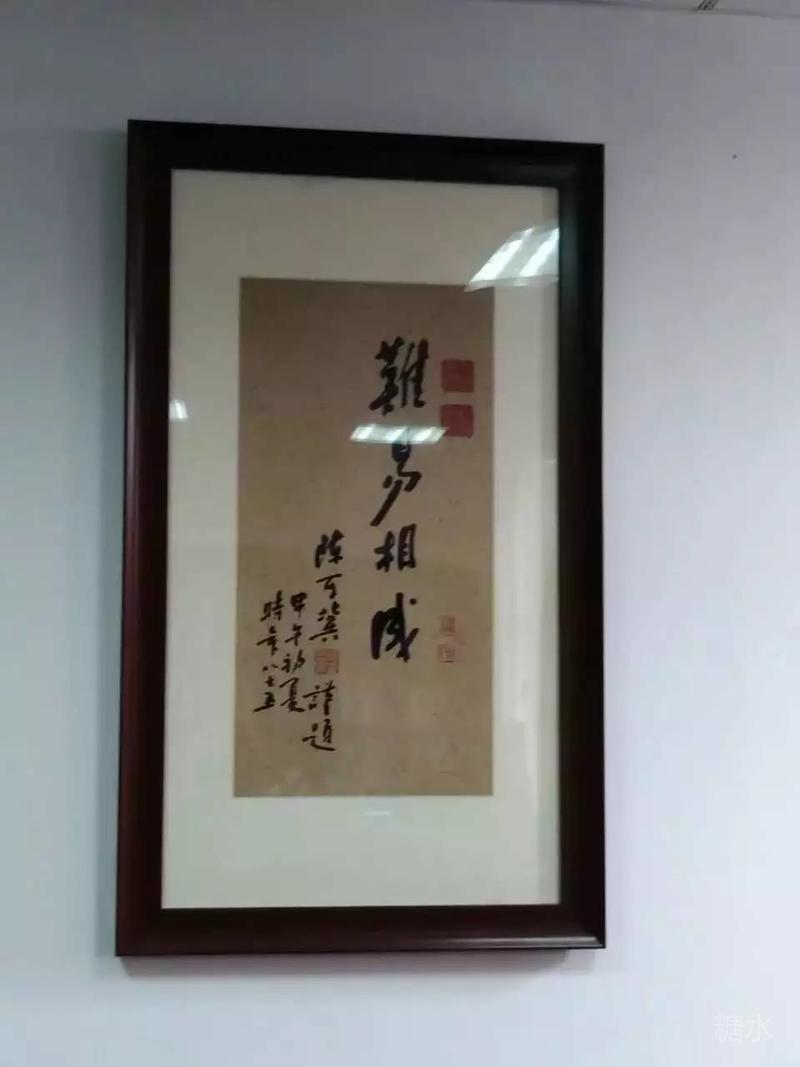 難易相成
陳可冀 謹題
甲午初夏
時年八十五
糖水